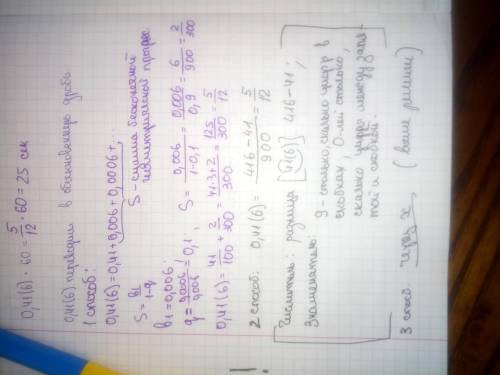 0,41(6) · 60 = 5/12 · 60 = 25 сек
0,41(6) переводим в обыкновенную дробь
1 способ:
0,41(6) = 0,41 + 0,006 + 0,0006 + ...
S = b1/1-q S - сумма бесконечной
геометрической прогрес.
b1 = 0,006
q = 0,0006/0,006 = 0,1, S = 0,006/1-0,1 = 0,006/0,9 = 6/900 = 2/300
0,41(6) = 41/100 + 2/300 = 41·3+2/300 = 125/300 = 5/12
2 способ: 0,41(6) = 416-41/900 = 5/12
Числитель: разница [41(6)] 416-41;
Знаменатель: 9 - столько, сколько цифр в
скобках, 0-лей столько,
сколько цифр между запя-
той и скобкой.
3 способ через x, (ваше решение)
1.